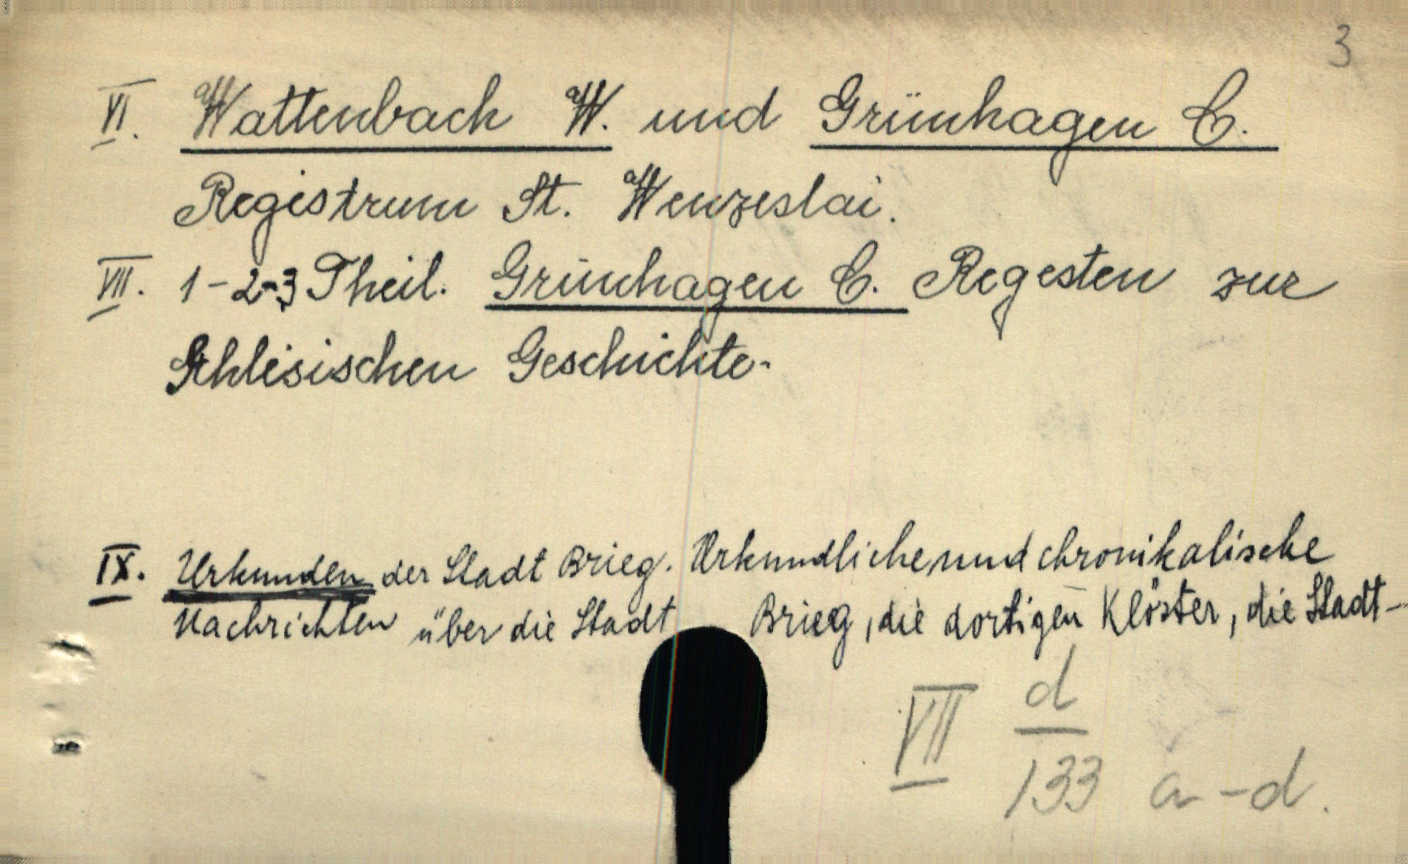 3
VI. Wattenbach W. und Grünhagen C.
Registrum St. Wenzeslai.
VII. 1-2-3 Theil. Grünhagen C. Regesten zur
Schlesischen Geschichte.
IX. Urkunden der Stadt Brieg. Urkundliche und chronikalische
Nachrichten über die Stadt Brieg, die dortigen Klöster, die Stadt-
VII d/133 a-d.